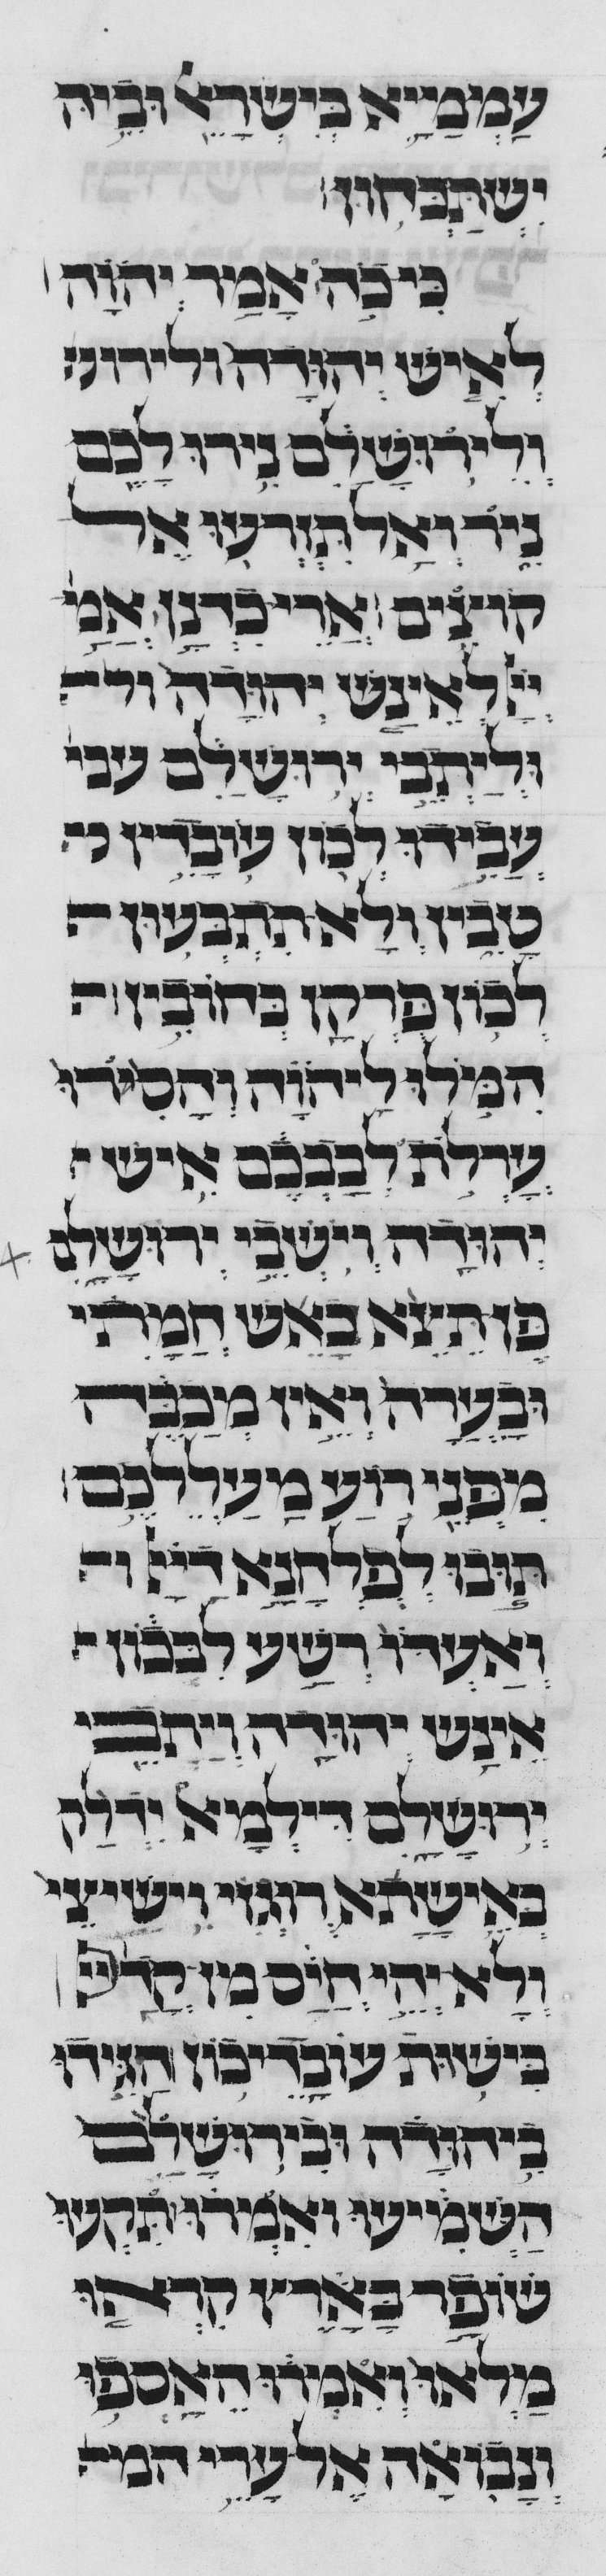 עַמְמַיָא בְּיִשְׂרָאֵל וּבֵיהּ
יִשְׁתַּבְּחוּן׃
כִּי כֹה אָמַר יְהוָה
לְאִישׁ יְהוּדָה ולירוש
וְלִירוּשָׁלִַם נִירוּ לָכֶם
נִיר וְאַל תִּזְרְעוּ אֶל
קוֹצִים׃ אֲרֵי כִדְנַן אֲמַ
יְיָ לֶאֱינָשׁ יְהוּדָה ול
וּלְיָתְבֵי יְרוּשְׁלֵם עבי
עֲבִידוּ לְכוֹן עוֹבָדִין
טָבִין וְלָא תִתְבְּעוּן
לְכוֹן פֻּרְקָן בְּחוֹבִין׃
הִמֹּלוּ לַיהוָה וְהָסִירוּ
עָרְלֹת לְבַבְכֶם אִישׁ
יְהוּדָה וְיֹשְׁבֵי יְרוּשָׁלִָם
פֶּן תֵּצֵא כָאֵשׁ חֲמָתִי
וּבָעֲרָה וְאֵין מְכַבֶּה
מִפְּנֵי רֹעַ מַעַלְלֵיכֶם׃
תּוּבוּ לְפָלְחָנָא דַיְיָ
וְאַעְדּוֹ רְשַׁע לִבְּכוֹן
אֱינַשׁ יְהוּדָה וְיָתְבֵי
יְרוּשָׁלִַם דִּילְמָא יִדְלַק
כְּאִישָׁתָא רוּגְזִי וִישֵׁיצֵי
וְלָא יְהֵי חַיָּס מִן קֳדָם
בִּישׁוּת עוֹבָדֵיכוֹן׃ הַגִּידוּ
בִיהוּדָה וּבִירוּשָׁלִַם
הַשְׁמִיעוּ וְאִמְרוּ תִּקְעוּ
שׁוֹפָר בָּאָרֶץ קִרְאוּ
מַלְאוּ וְאִמְרוּ הֵאָסְפוּ
וְנָבוֹאָה אֶל עָרֵי המ